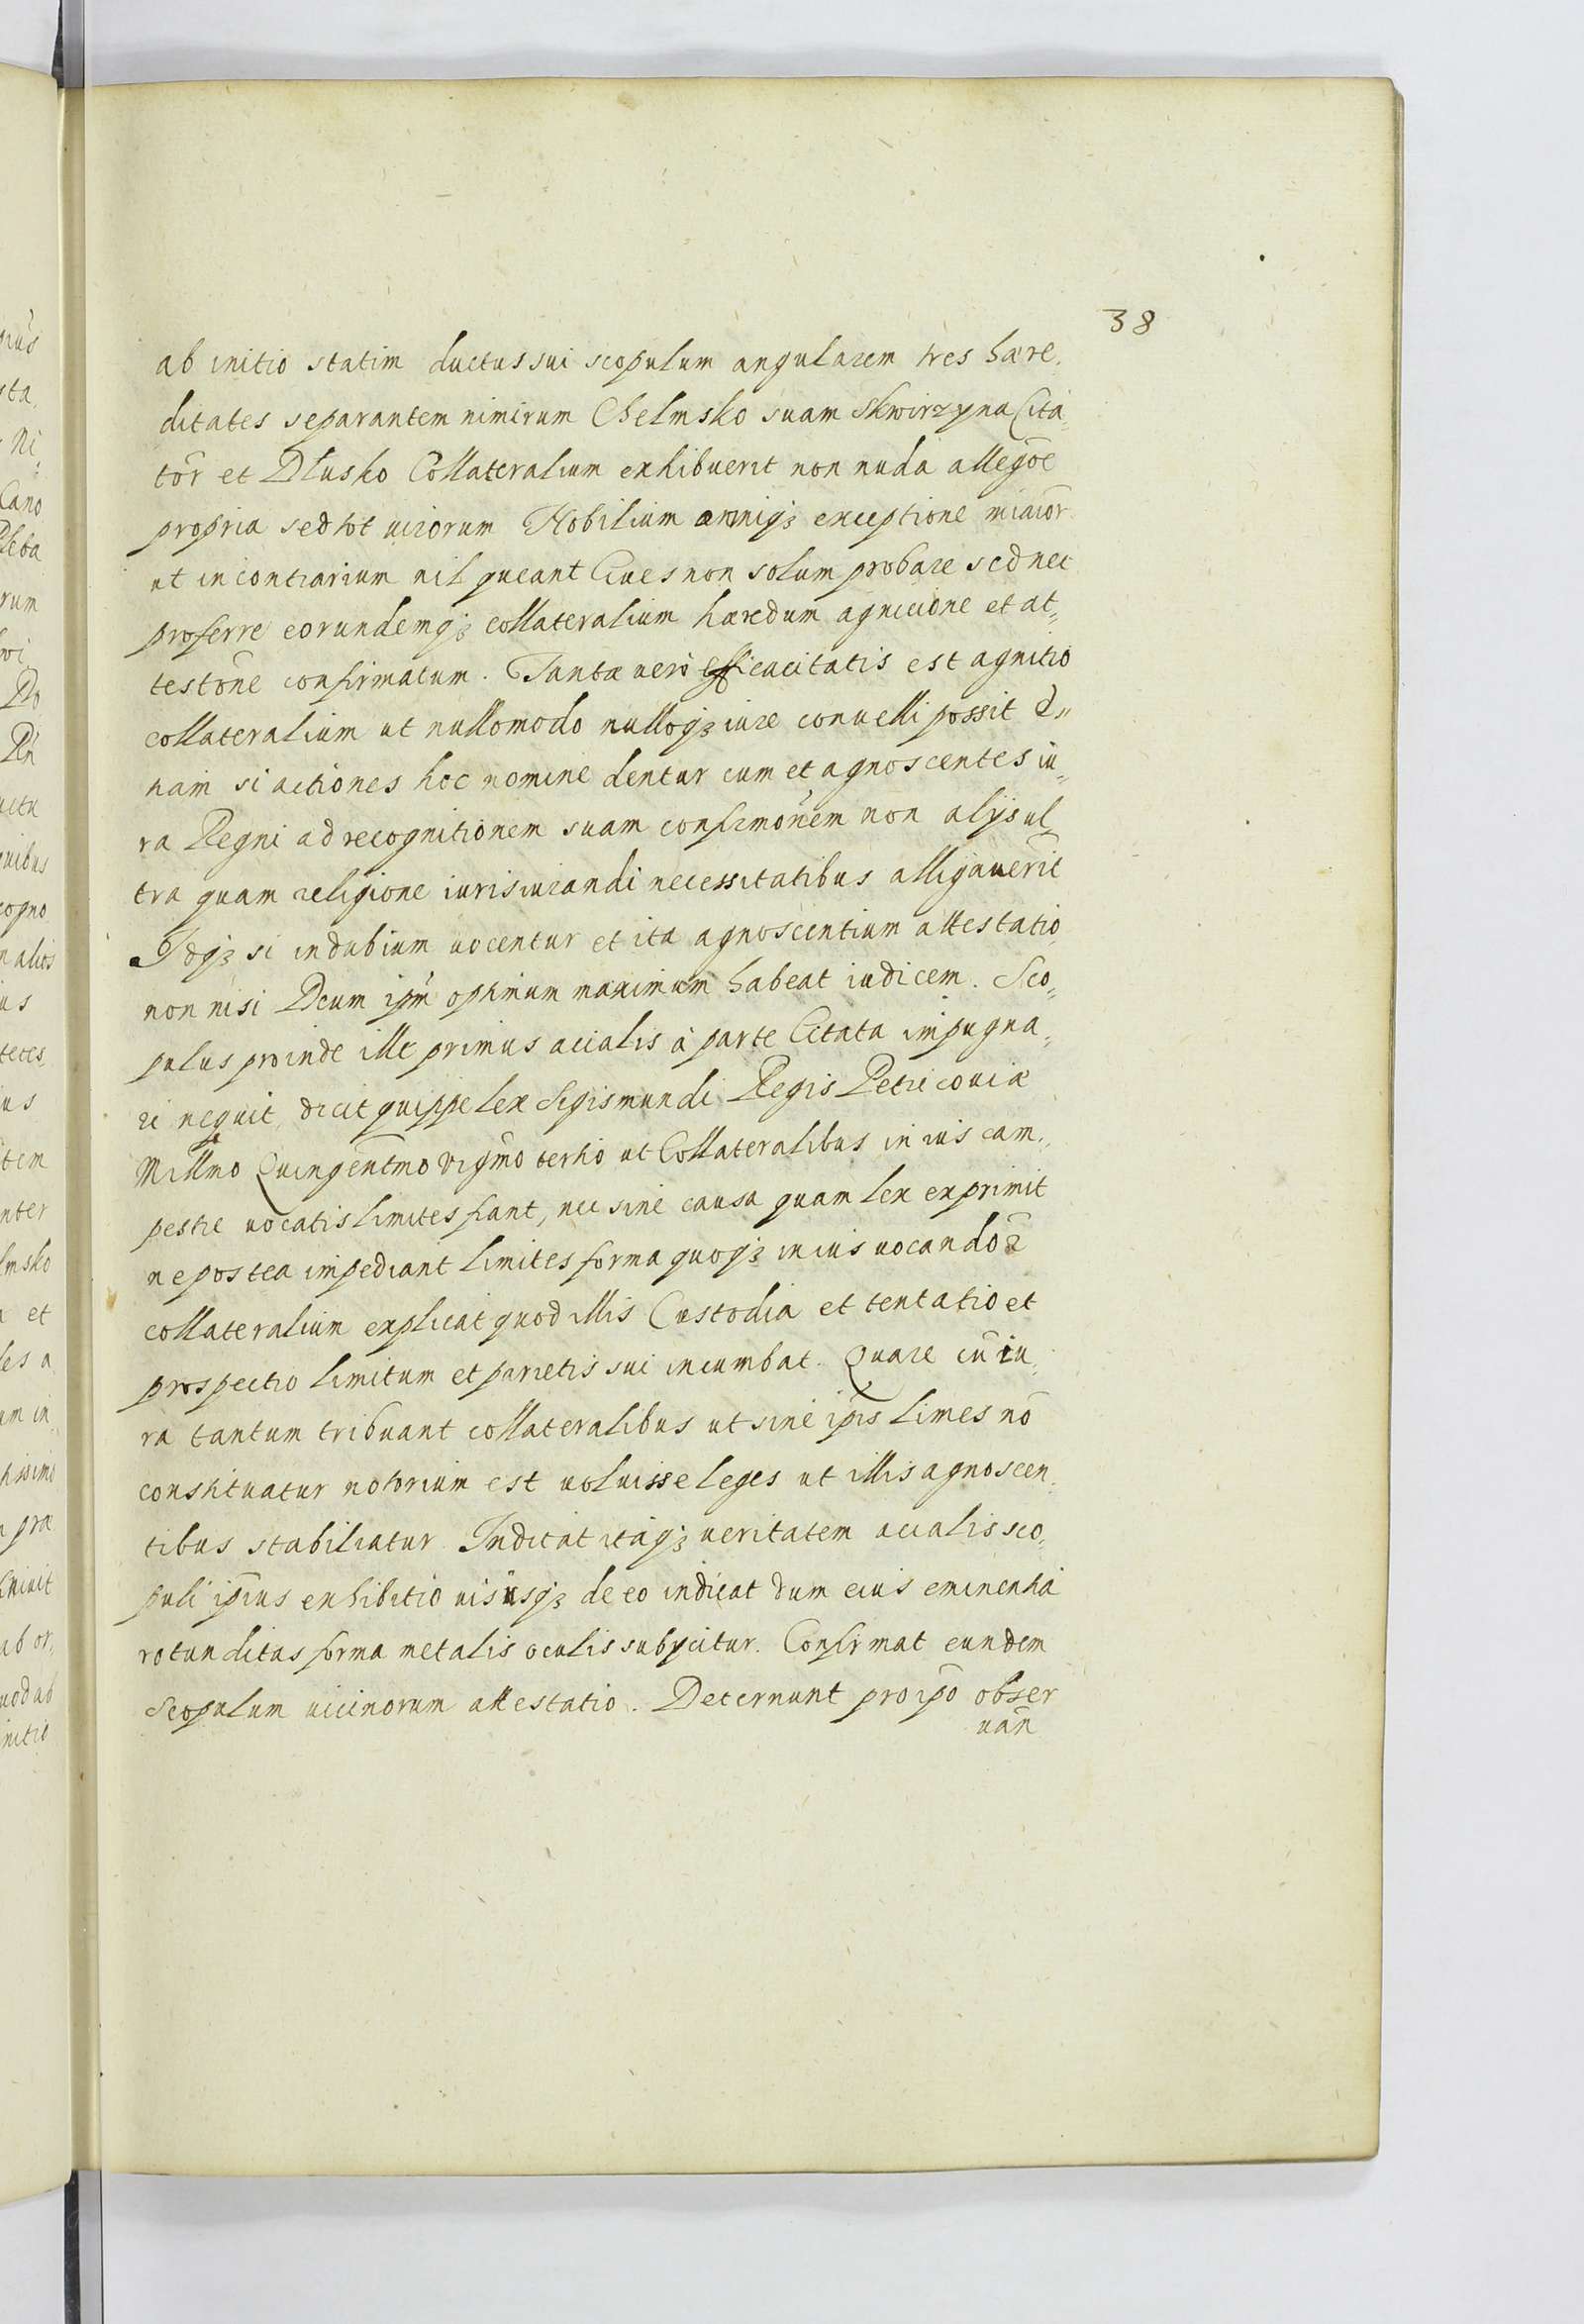 38
ab initio statim ductus sui scopulum angularem tres hære,
ditates separantem nimirum Chelmsko suam Skwirzyna Cita„
tōr et Dlusko Collateralium exhibuerit non nuda allegōe
propria sed tot uirorum Nobilium omniqꝫ exceptione maiōr
ut in contrarium nil queant Ciues non solum probare sed nec
proferre eorundemqꝫ collateralium hæredum agnicione et at„
testōne confirmatum. Tantæ vero efficacitatis est agnitio
collateralium ut nullomodo nulloqꝫ iure conuelli possit &„
nam si actiones hoc nomine dentur cum et agnoscentes iu„
ra Regni ad recognitionem suam confirmōnem non alijs ul„
tra quam religione iurisiurandi necessitatibus alligauerīt
Idqꝫ si indubium uocentur et ita agnoscentium attestatio
non nisi Deum ipm̄ optimum maximum habeat iudicem. Sco„
pulus proinde ille primus acialis à parte Citata impugna„
ri nequit, dicit quippe lex Sigismundi Regis Petricoviæ
Millmo Quingentmo vigmo tertio ut Collateralibus in ius cam„
pestre uocatis limites fiant, nec sine causa quam lex exprimit
ne postea impediant limites forma quoqꝫ in ius uocandoꝝ
collateralium explicat quod illis Custodia et tentatio et
prospectio limitum et parietis sui incumbat. Quare cū iu„
ra tantum tribuant collateralibus ut sine ip̄is limes nō
constituatur notorium est uoluisse leges ut illis agnoscen„
tibus stabiliatur. Indicat itaqꝫ ueritatem acialis sco„
puli ip̄ius exhibitio uisusqꝫ de eo indicat dum eius eminentia
rotunditas forma metalis oculis subijcitur. Confirmat eundem
Scopulum uicinorum attestatio. Decernunt pro ip̄o obser
uan̄